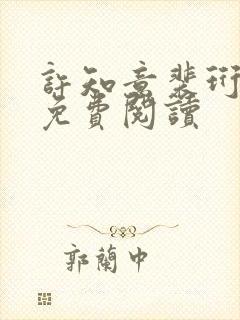 許知意裴珩
免費閱讀
郭蘭中